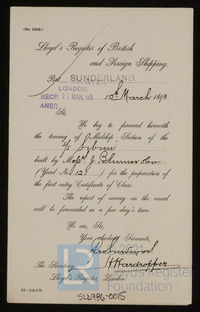 Lloyd's Register of British
and Foreign Shipping,
Port SUNDERLAND.
LONDON
RECD 11 MAR 93
ANSD
10th March 1893
Sir,
We beg to forward herewith
the tracing of Midship Section of the
built by Messrs J. Blumer & Co
(Yard No. 121) for the preparation of
the first entry Certificate of Class.
The report of survey on the vessel
will be forwarded in a few day's time.
We are, Sir,
Your obedient Servants,
H Wardropper
The Secretary,
Lloyd's Register, London
SLD986-0015